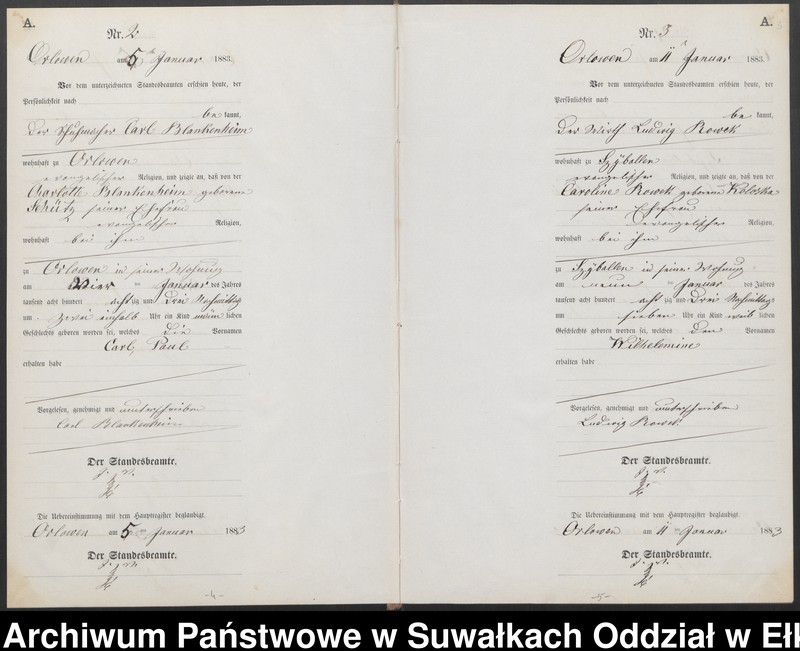 A.
Nr. 2
Orlowen am 5 Januar 1883.
Vor dem unterzeichneten Standesbeamten erschien heute, der
Persönlichkeit nach
be kannt,
der Schuhmacher Carl Blankenheim
wohnhaft zu Orlowen
evangelischer Religion, und zeigte an, daß von der
Charlotte Blankenheim geborene
Schütz seiner Ehefrau
evangelischer Religion,
wohnhaft bei ihm
zu Orlowen in seiner Wohnung
am Vier ten Januar des Jahres
tausend acht hundert acht zig und drei Nachmittags
um zwei einhalb Uhr ein Kind männ lichen
Geschlechts geboren worden sei, welches die Vornamen
Carl Paul
erhalten habe
Vorgelesen, genehmigt und unterschrieben
Carl Blankenheim
Der Standesbeamte.
Die Uebereinstimmung mit dem Hauptregister beglaubigt.
Orlowen am 5 ten Januar 1883
Der Standesbeamte.
-4-
A.
Nr. 3
Orlowen am 11 Januar 1883.
Vor dem unterzeichneten Standesbeamten erschien heute, der
Persönlichkeit nach
be kannt,
der Wirth Ludwig Rowek
wohnhaft zu Szyballen
evangelischer Religion, und zeigte an, daß von der
Caroline Rowek geborene Koloska
seiner Ehefrau
evangelischer Religion,
wohnhaft bei ihm
zu Szyballen in seiner Wohnung
am neun ten Januar des Jahres
tausend acht hundert acht zig und drei Nachmittags
um sieben Uhr ein Kind weib lichen
Geschlechts geboren worden sei, welches den Vornamen
Wilhelemine
erhalten habe
Vorgelesen, genehmigt und unterschrieben
Ludwig Rowek
Der Standesbeamte.
Die Uebereinstimmung mit dem Hauptregister beglaubigt.
Orlowen am 11 ten Januar 1883
Der Standesbeamte.
-5-
Archiwum Państwowe w Suwałkach Oddział w Ełk